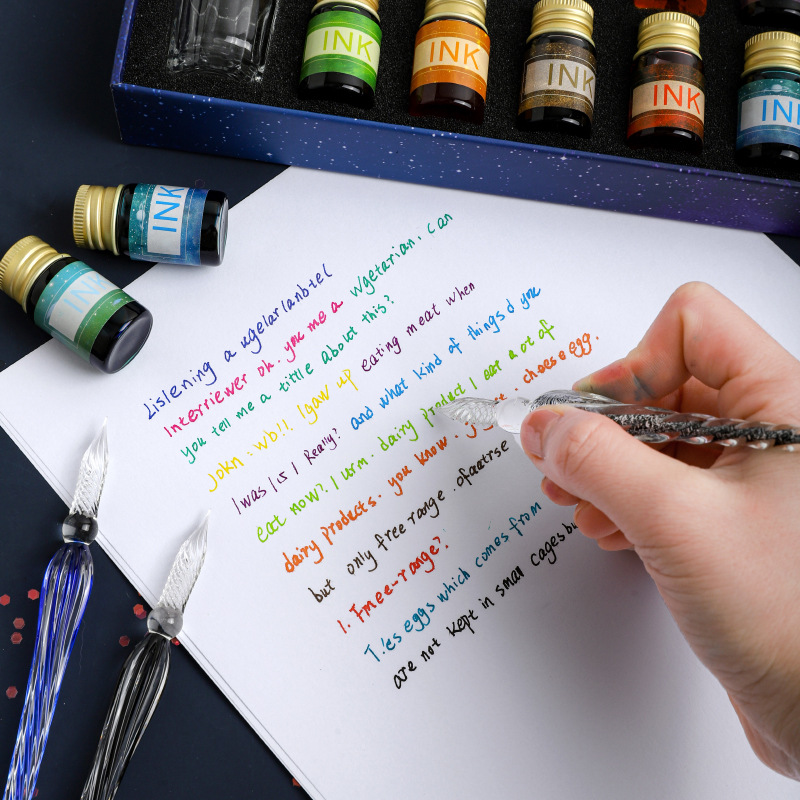 INK
INK
INK
INK
INK
INK
INK
Lislening a ugelarlanbtel
Interriewer oh. you me a wgetarian. can
you tell me a tittle about this?
John : wb!!. Igaw up eating meat when
I was 15 I Really? and what kind of things d you
eat now?. I urm. dairy product I eat a ot of
dairy products. you know . choese egg.
but only free range . ofaetrse
1. Fmee-range?
T.'es eggs which comes from
are not kept in small cages bu